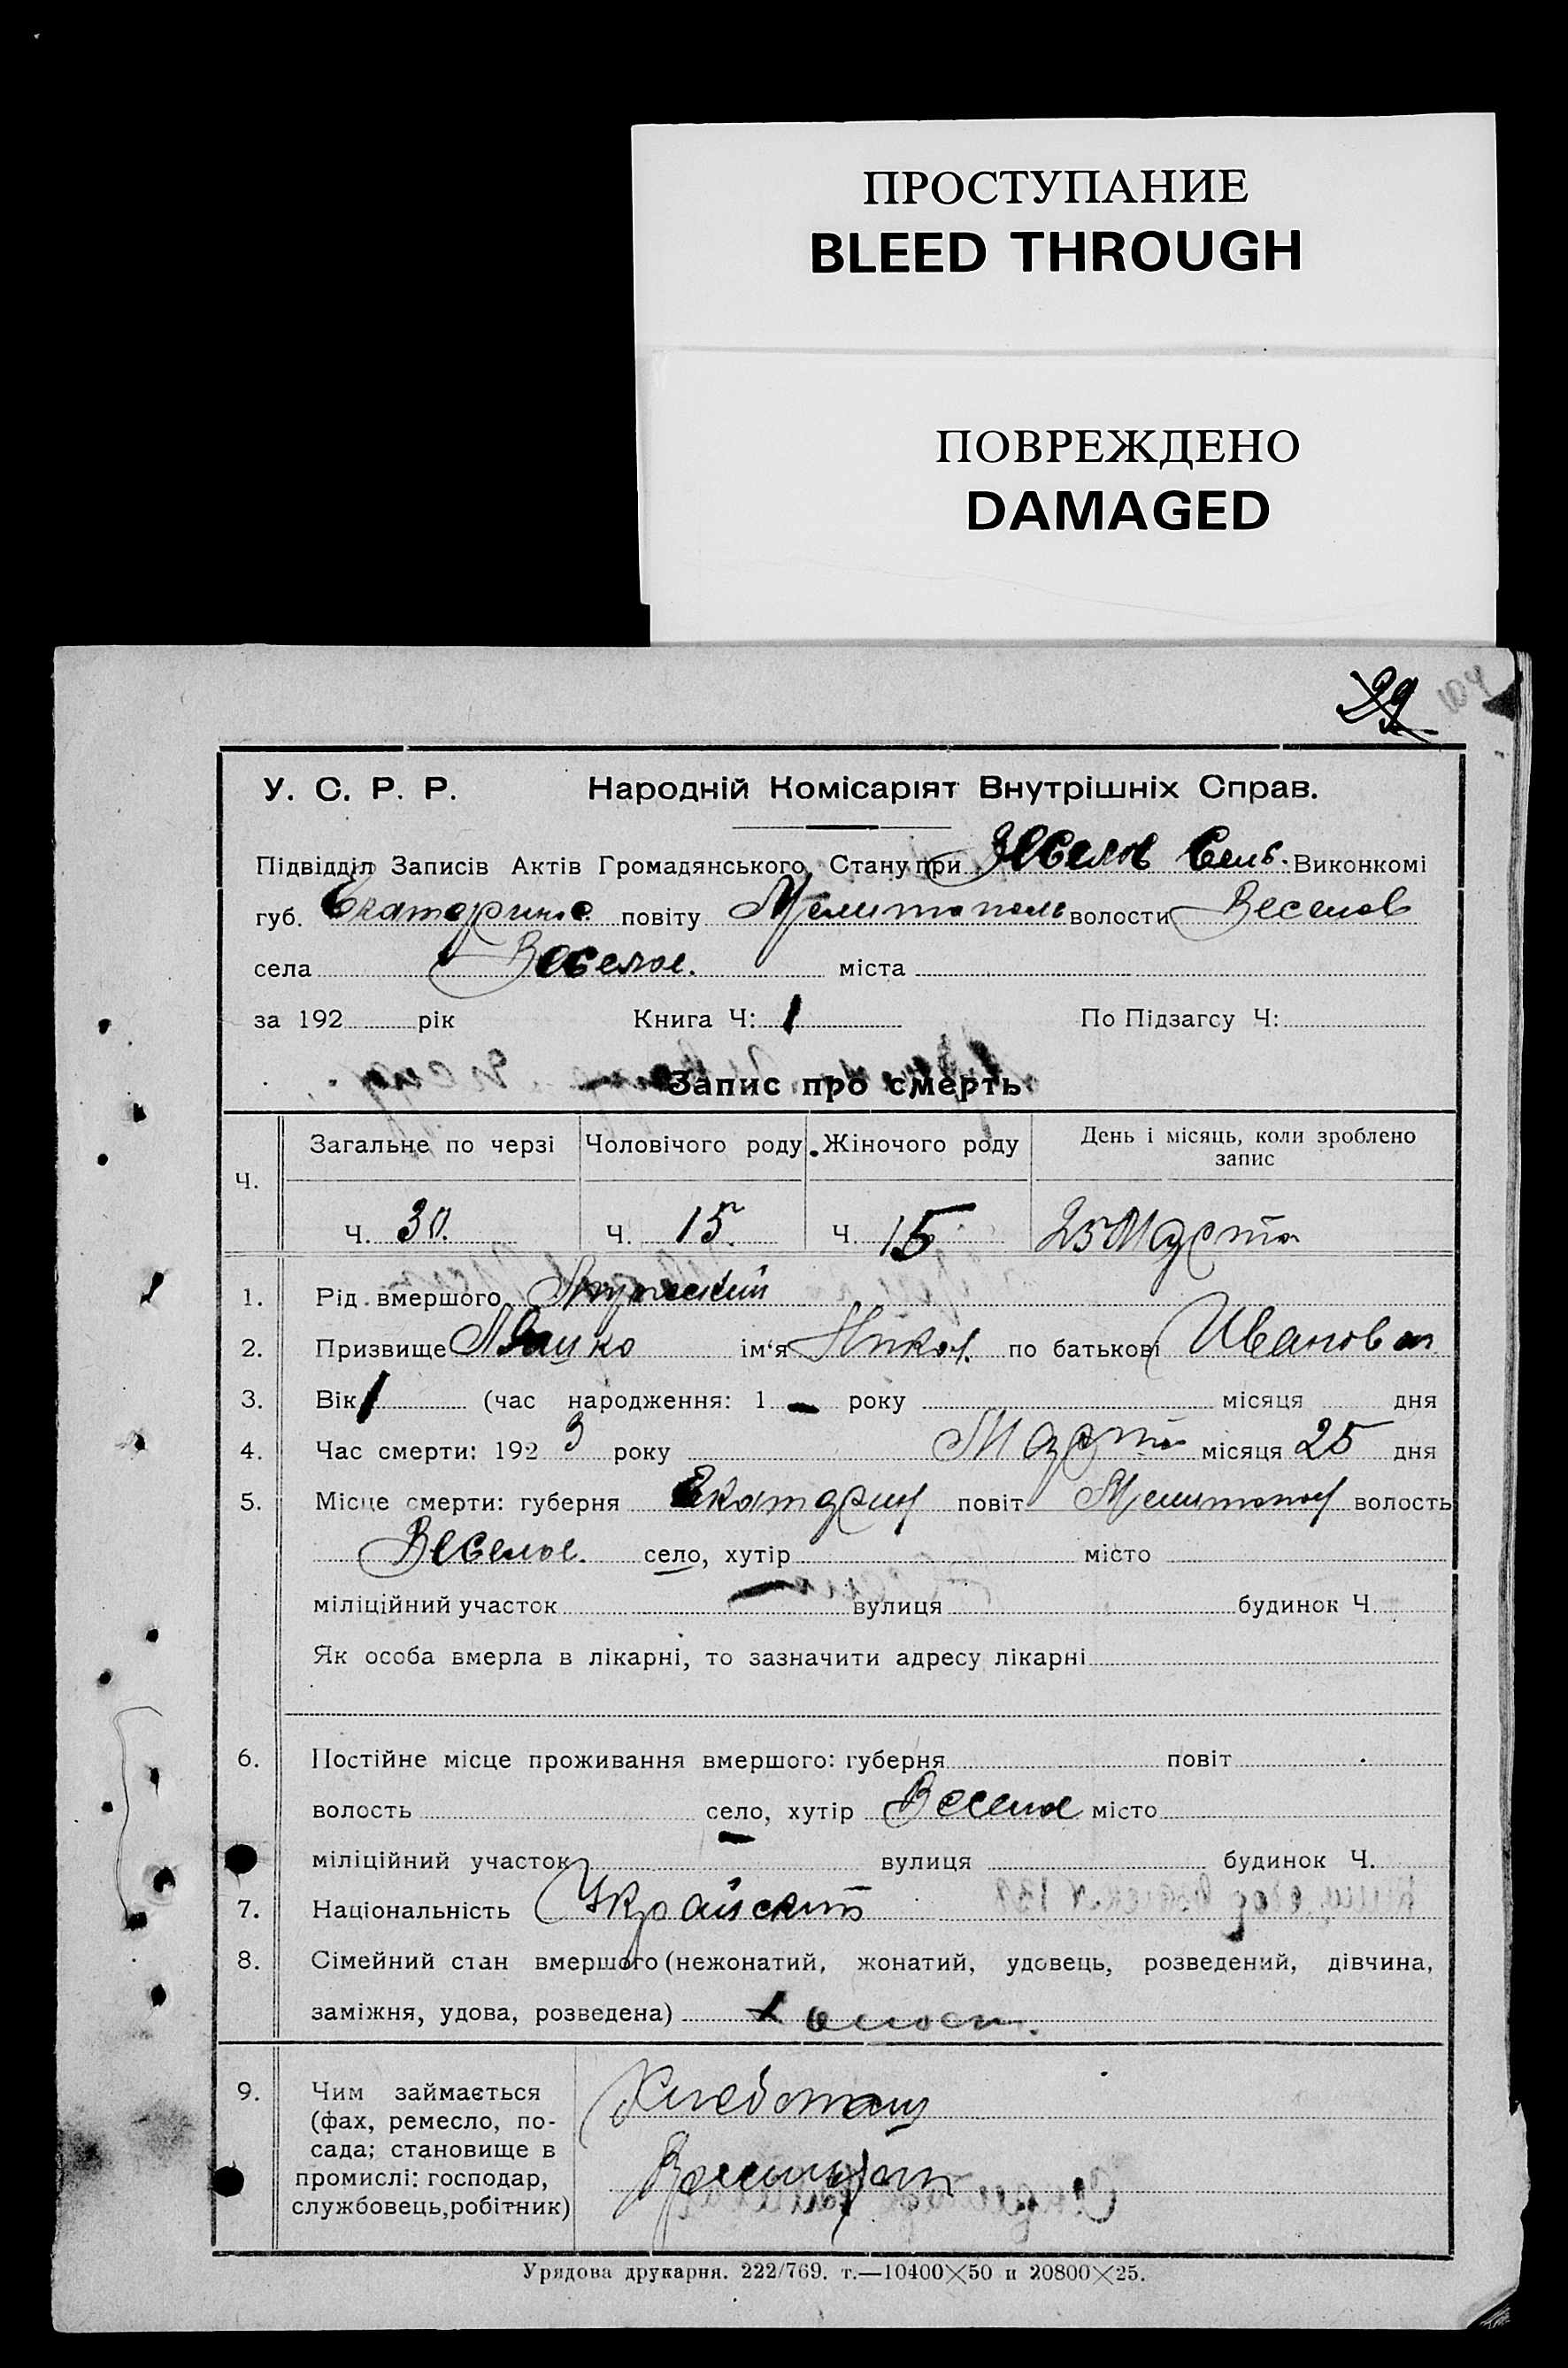 ПРОСТУПАНИЕ
BLEED THROUGH
ПОВРЕЖДЕНО
DAMAGED
29
У. С. Р. Р. Народній Комісаріят Внутрішніх Справ.
Підвідділ Записів Актів Громадянського Стану при Веселов Сель. Виконкомі
губ. Екатерино. повіту Мелитополь волости Веселов
села Веселое. міста
за 192 рік Книга Ч: 1 По Підзагсу Ч:
Запис про смерть
Ч. Загальне по черзі Чоловічого роду Жіночого роду День і місяць, коли зроблено
запис
Ч. 30. Ч. 15. Ч. 15 25 Марта
1. Рід вмершого Мужеский
2. Призвище ім'я Никол. по батькові Иванов
3. Вік 1 (час народження: 1 — року місяця дня
4. Час смерти: 192 3 року Марта місяця 25 дня
5. Місце смерти: губерня Екатерин повіт Мелитопол волость
Веселое. село, хутір місто
міліційний участок — вулиця будинок Ч.
Як особа вмерла в лікарні, то зазначити адресу лікарні
6. Постійне місце проживання вмершого: губерня повіт
волость село, хутір Веселое місто
міліційний участок вулиця будинок Ч.
7. Національність Украйский
8. Сімейний стан вмершого (нежонатий, жонатий, удовець, розведений, дівчина,
заміжня, удова, розведена) Холост.
9. Чим займається
(фах, ремесло, по-
сада; становище в
промислі: господар,
службовець, робітник)
Хлебопаш
Урядова друкарня. 222/769. т.—10400×50 и 20800×25.